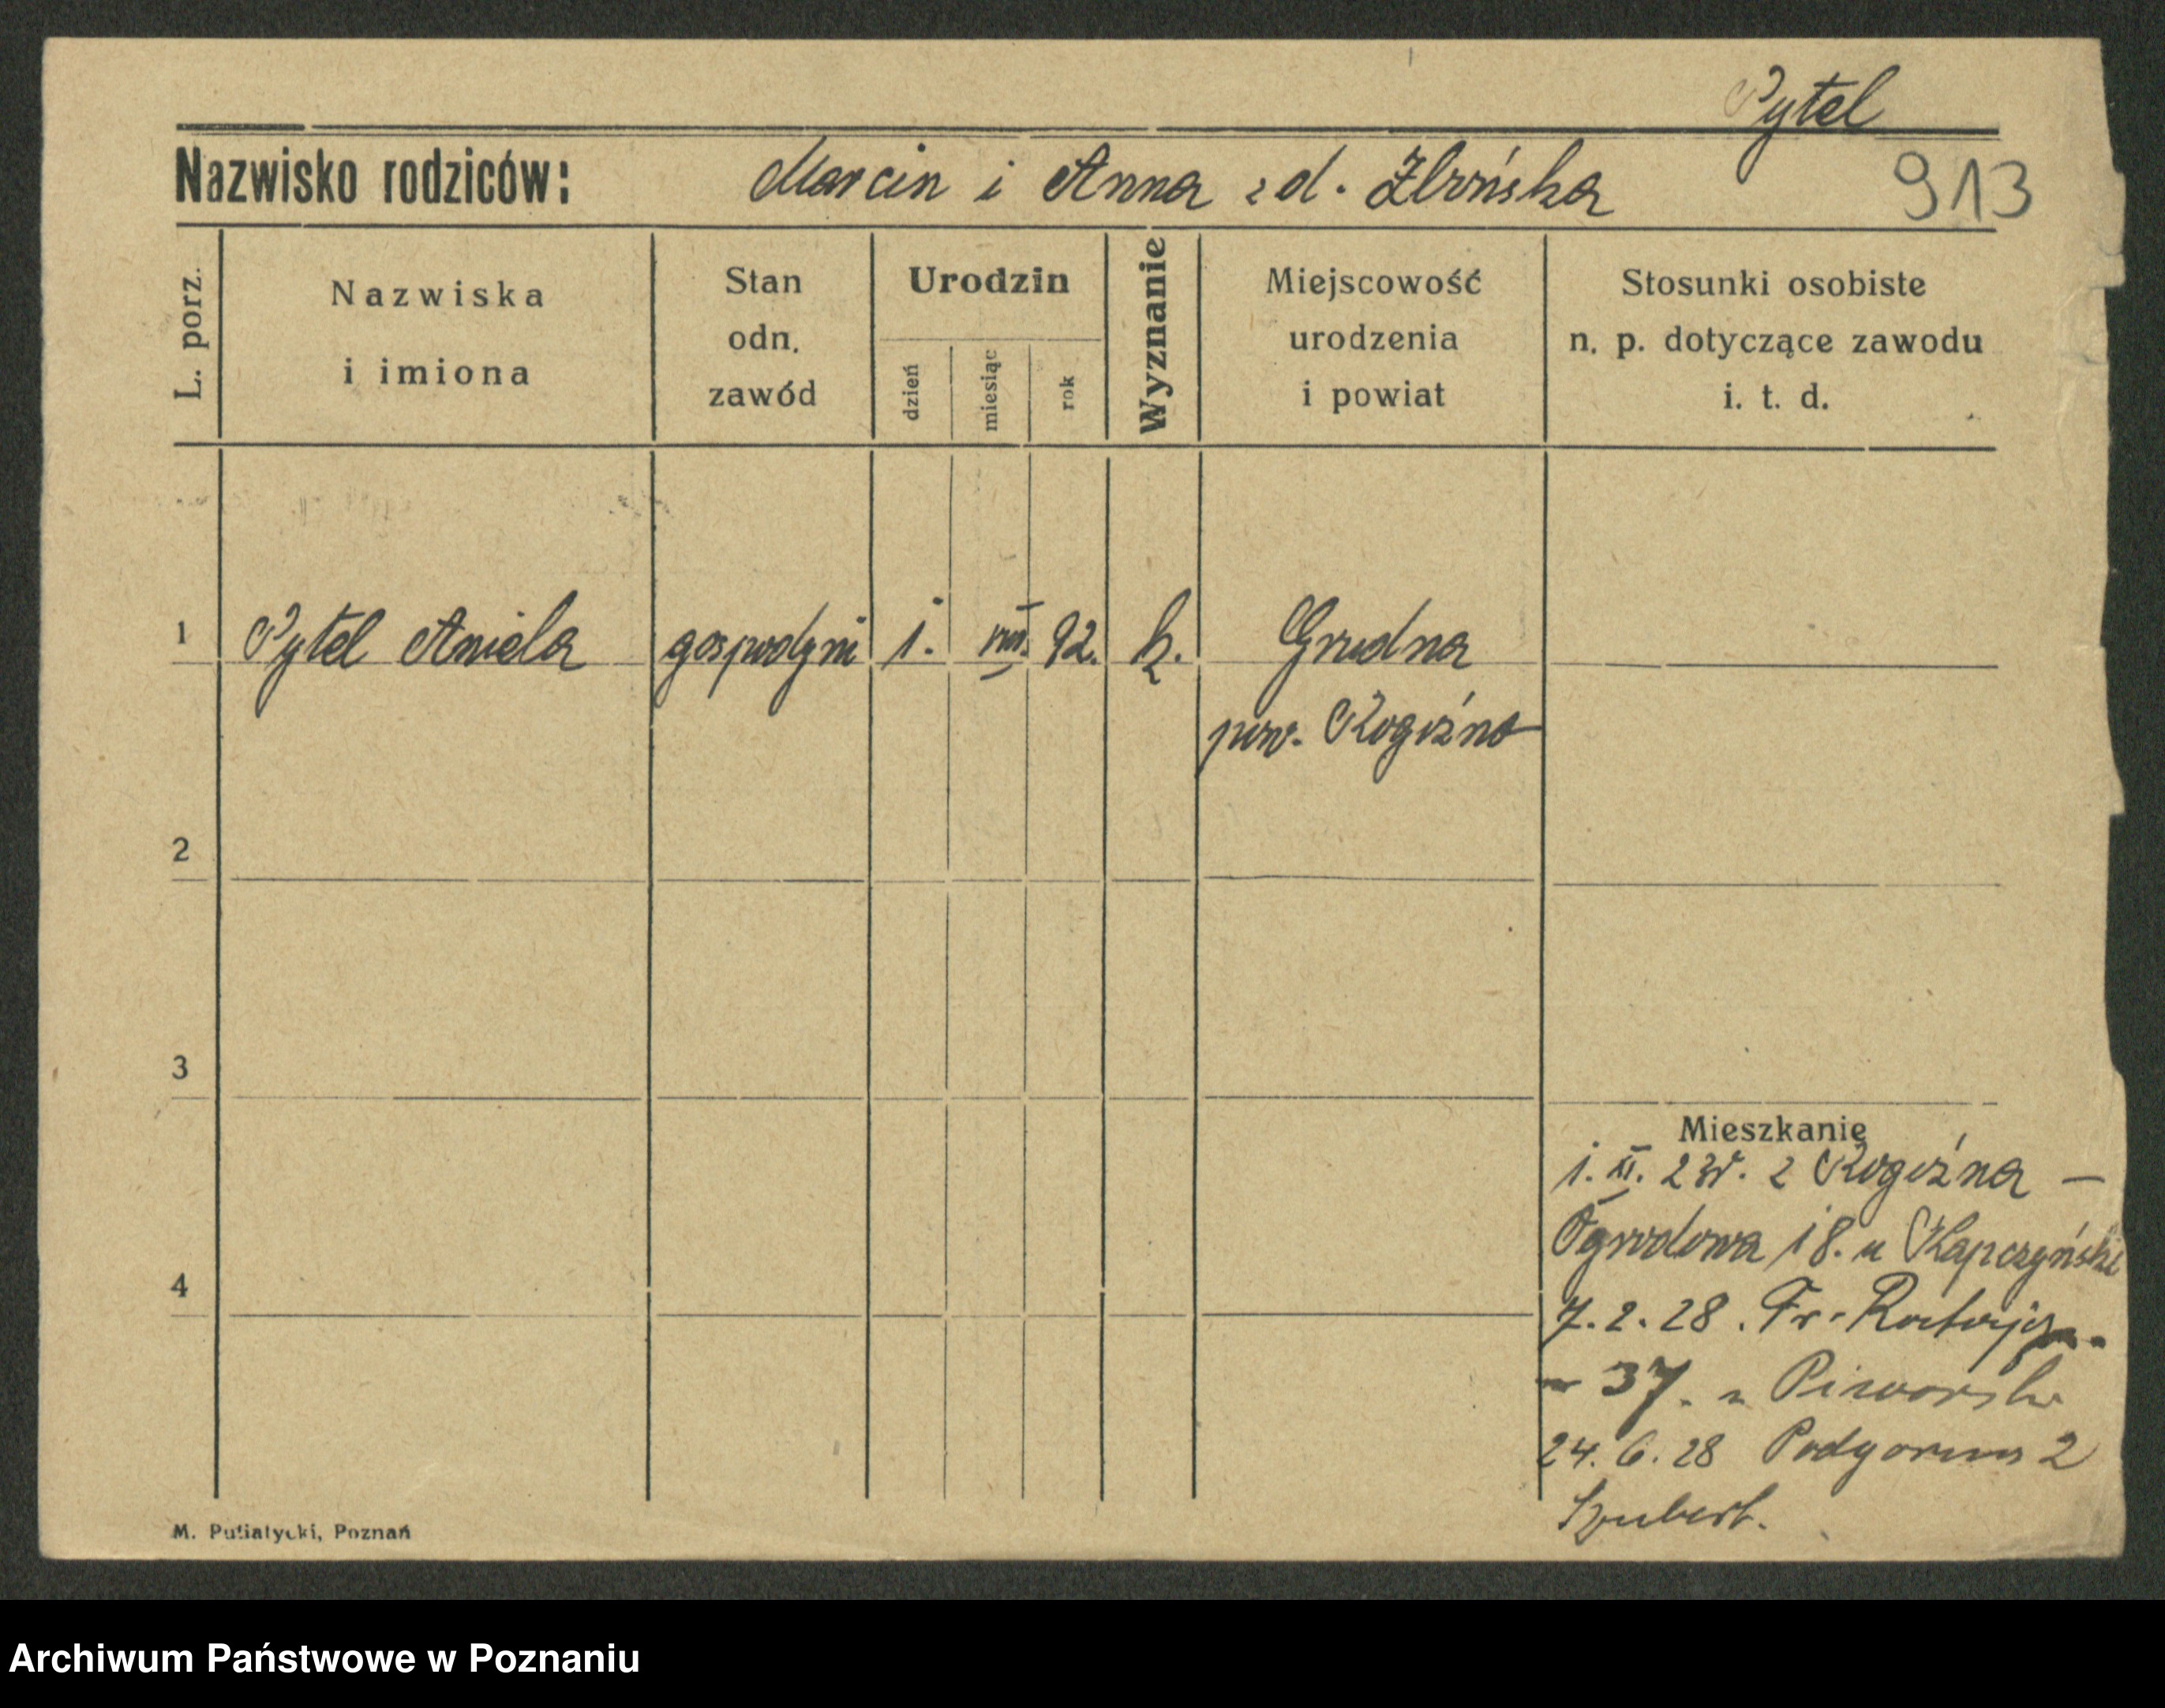 Pytel
Nazwisko rodziców: Marcin i Anna z d. Zbrońska
913
L. porz.
Nazwiska
i imiona
Stan
odn.
zawód
Urodzin
dzień
miesiąc
rok
Wyznanie
Miejscowość
urodzenia
i powiat
Stosunki osobiste
n. p. dotyczące zawodu
i. t. d.
1 Pytel Aniela gospodyni 1. VIII. 92. k. Grudna
pow. Rogoźno
2
3
Mieszkanie
1. XI. 23r. z Rogoźna —
Ogrodowa 18. u Kapczyński
4
7. 2. 28. Fr.
37. u
24. 6. 28 2
Szubert.
M. Putiatycki, Poznań
Archiwum Państwowe w Poznaniu